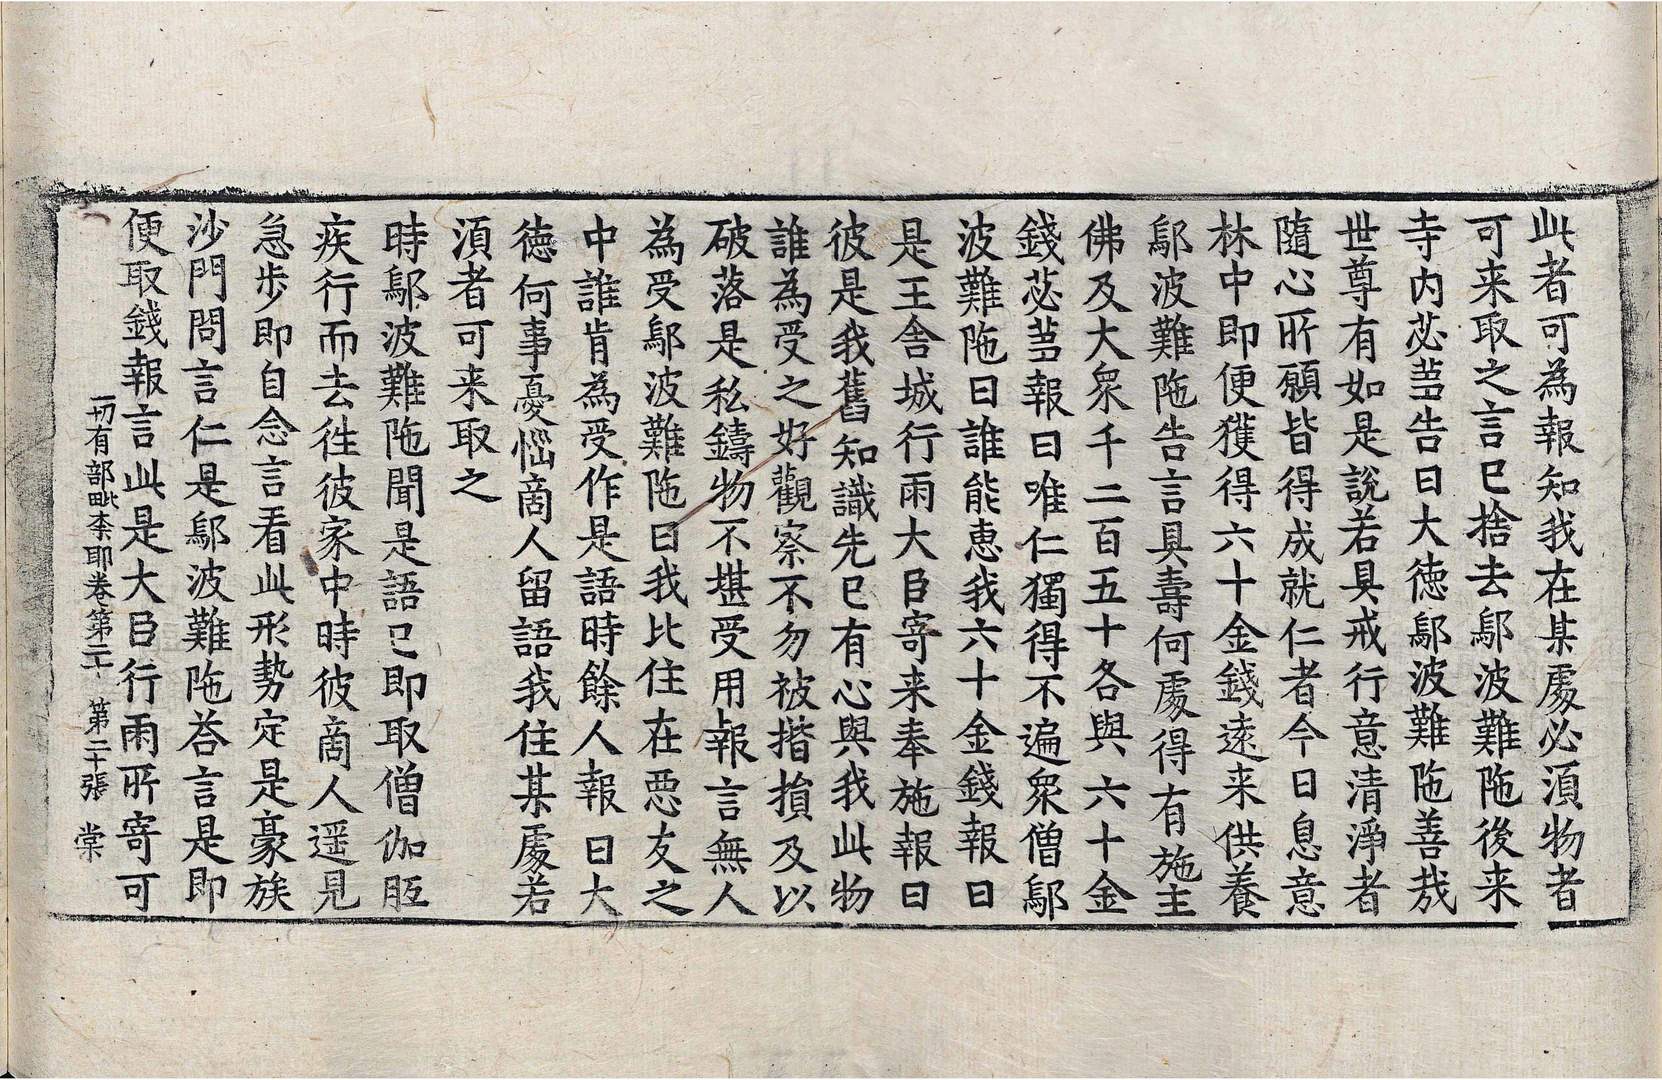 此者可為報知我在某處必湏物者
可来取之言已捨去鄔波難陁後来
寺内苾芻告曰大徳鄔波難陁善㢤
世尊有如是說若具戒行意清淨者
隨心所願皆得成就仁者今日息意
林中即便獲得六十金錢遠来供養
鄔波難陁告言具壽何處得有施主
佛及大衆千二百五十各與六十金
錢苾芻報曰唯仁獨得不遍衆僧鄔
波難陁曰誰能惠我六十金錢報曰
是王舍城行雨大臣寄来奉施報曰
彼是我舊知識先已有心與我此物
誰為受之好觀察不勿被揩損及以
破落是私鑄物不堪受用報言無人
為受鄔波難陁曰我比住在惡友之
中誰肯為受作是語時餘人報曰大
徳何事憂惱商人留語我住某處若
湏者可来取之
時鄔波難陁聞是語已即取僧伽胝
疾行而去往彼家中時彼商人遥見
急步即自念言看此形勢定是豪族
沙門問言仁是鄔波難陁荅言是即
便取錢報言此是大臣行雨所寄可
一切有部毗柰耶卷第二十　第二十張　棠